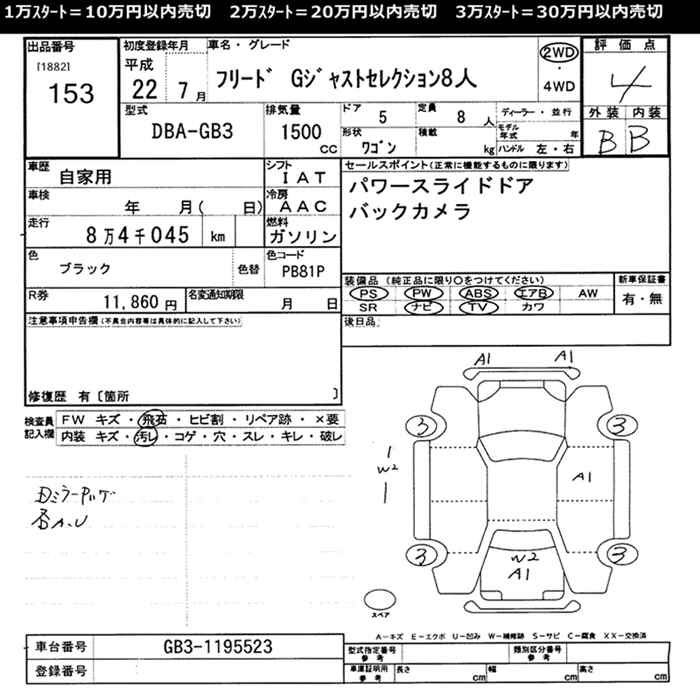 1万ｽﾀｰﾄ＝10万円以内売切　2万ｽﾀｰﾄ＝20万円以内売切　3万ｽﾀｰﾄ＝30万円以内売切
出品番号
[1882]
153
初度登録年月
平成
22 7月
車名・グレード
フリード Gジャストセレクション8人
2WD
・
4WD
評価点
4
外装 内装
B B
型式
DBA-GB3
排気量
1500
cc
ドア
5
定員
8人
形状
ワゴン
積載
kg
ディーラー・並行
モデル年式 年
ハンドル 左・右
車歴
自家用
シフト
IAT
車検
年 月( 日)
冷房
AAC
走行
8万4千045 km
燃料
ガソリン
色
ブラック
色替
色コード
PB81P
R券
11,860円
名変通知期限
月 日
セールスポイント(正常に機能するものに限ります)
パワースライドドア
バックカメラ
装備品 (純正品に限り○をつけてください)
PS PW ABS エアB AW
SR ナビ TV カワ
新車保証書
有・無
後日品
注意事項申告欄(不具合内容等は具体的に記入して下さい)
修復歴 有〔箇所 〕
検査員
記入欄
FW キズ・飛石・ヒビ割・リペア跡・×要
内装 キズ・汚レ・コゲ・穴・スレ・キレ・破レ
A1 A1
3 3
W2
A1
3 3
W2
A1
スペア
A－キズ E－エクボ U－凹み W－補修跡 S－サビ C－腐食 XX－交換済
車台番号
GB3-1195523
登録番号
型式指定番号
参考
類別区分番号
参考
車庫証明用
参考
長さ cm 幅 cm 高さ cm